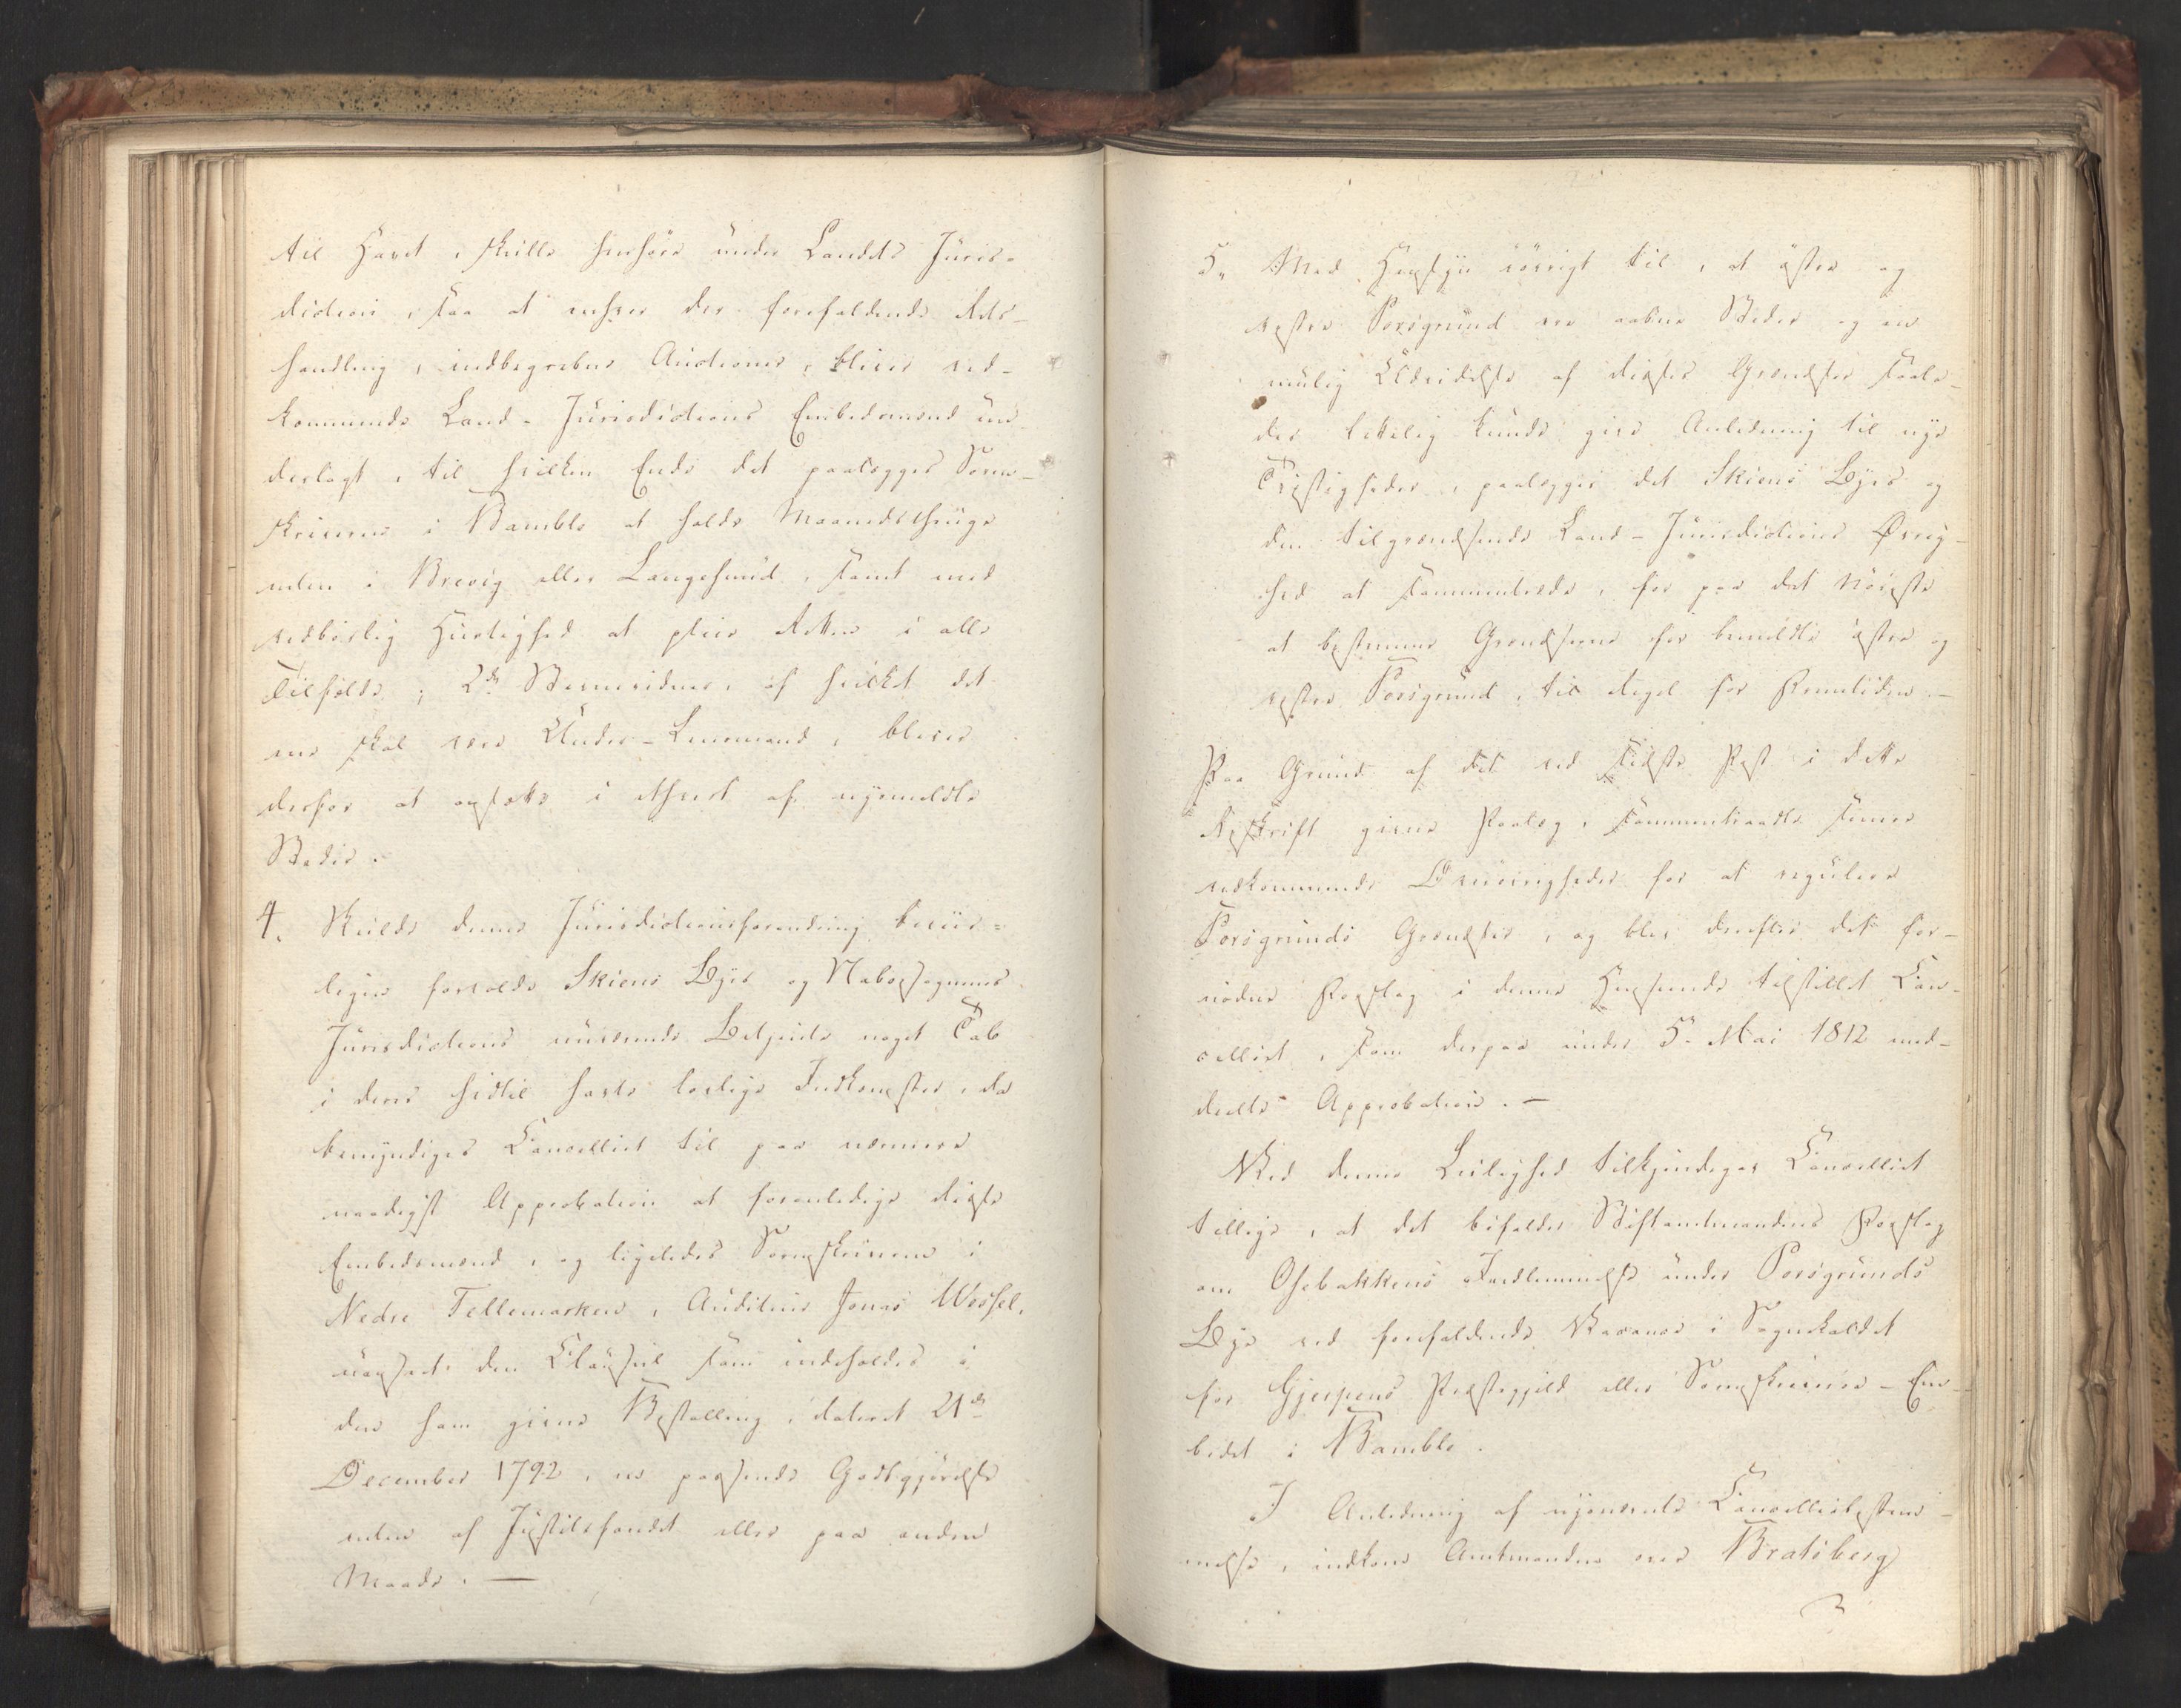 til Havet, skille henhøre under Landets Juris-
diction, saa at enhver der forefaldende Rets-
handling, indbegreben Auctioner, bliver ved-
kommende Land-Jurisdictions Embedsmænd un-
derlagt, til hvilken Ende det paalægges Soren-
skriveren i Bamble at holde Maanedsthinge
enten i Brevig eller Langesund, samt med
vedbørlig Hurtighed at pleie Retten i alle
Tilfælde; 2de Stævnevidner, af hvilket det
ene skal være Under-Lensmand, bliver
derfor at ansætte i ethvert af nysmeldte
Steder.
4. Skulde denne Jurisdictionsforandring beviis-
ligen forvolde Skiens Byes og Nabosognenes
Jurisdictions nuværende Betjente noget Tab
i deres hidtil havte lovlige Indkomster, da
bemyndiges Cancelliet til paa nærmere
naadigst Approbation at foranledige disse
Embedsmænd, og ligeledes Sorenskriveren i
Nedre Tellemarken, Auditeur Jonas Wessel,
uanseet den Clausul som indeholdes i
den ham givne Bestalling, dateret 21de
December 1792, en passende Godtgjørelse
enten af Justitsfondet eller paa anden
Maade. —
5. Med Hensyn iøvrigt til, at østre og
vestre Porsgrund ere aabne Steder og en
mulig Udvidelse af disses Grændser saale-
des lettelig kunde give Anledning til nye
Tvistigheder, paalægges det Skiens Byes og
den tilgrændsende Land-Jurisdictions Øvrig-
hed at sammentræde, for paa det Nøieste
at bestemme Grændserne for bemeldte østre og
vestre Porsgrund, til Regel for Fremtiden. —
Paa Grund af det ved sidste Post i dette
Rescript givne Paalæg, sammentraadte siden
vedkommende Øvrigheder for at regulere
Porsgrunds Grændser, og blev derefter det for-
nødne Forslag i denne Henseende tilstillet Can-
celliet, som derpaa under 5. Mai 1812 med-
deelte Approbation. —
Ved denne Leilighed tilkjendegav Cancelliet
tillige, at det bifaldte Stiftamtmandens Forslag
om Osebakkens Indlemmelse under Porsgrunds
Bye ved forefaldende Vacance i Sognekaldet
for Gjerpens Præstegjeld eller Sorenskriver-Em-
bedet i Bamble.
I Anledning af nysnævnte Cancellibestem-
melse, indkom Amtmanden over Bratsberg